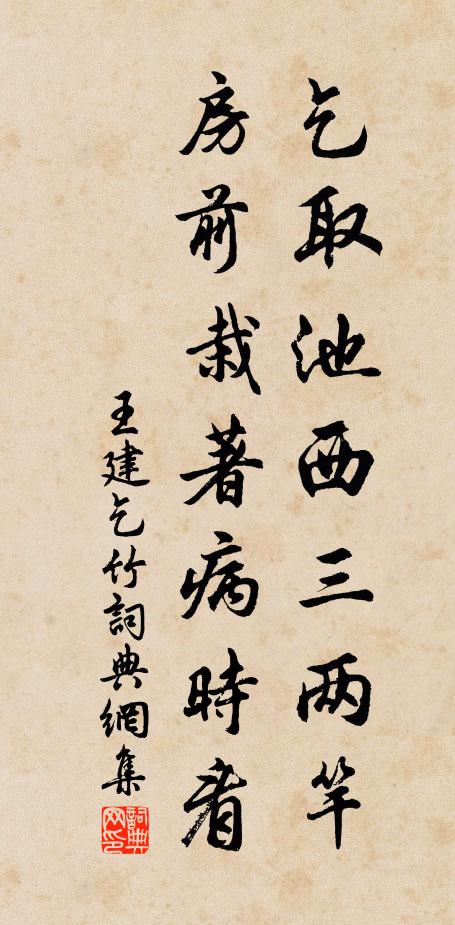 乞取池西三两竿
房前栽著病時看
王建乞竹詞典網集
詞典
网印